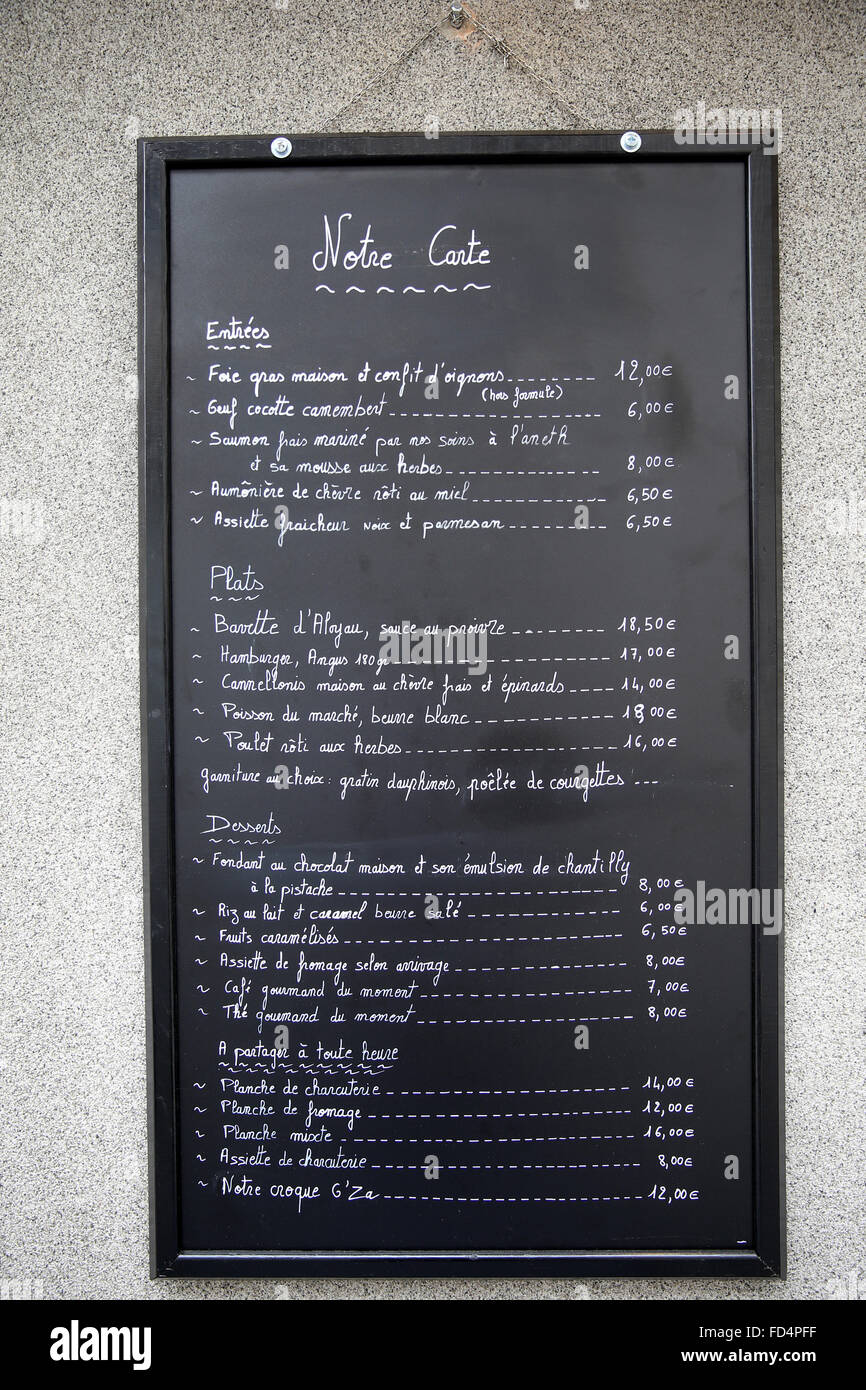 Notre Carte
Entrées
~ Foie gras maison et confit d'oignons 12,00€
(hors formule)
~ Oeuf cocotte camembert 6,00€
~ Saumon frais mariné par nos soins à l'aneth
et sa mousse aux herbes 8,00€
~ Aumônière de chèvre rôti au miel 6,50€
~ Assiette fraicheur noix et parmesan 6,50€
Plats
~ Bavette d'Aloyau, sauce au poivre 18,50€
~ Hamburger, Angus 180gr 17,00€
~ Cannellonis maison au chèvre frais et épinards 14,00€
~ Poisson du marché, beurre blanc 18,00€
~ Poulet rôti aux herbes 16,00€
garniture au choix : gratin dauphinois, poêlée de courgettes ---
Desserts
~ Fondant au chocolat maison et son émulsion de chantilly
à la pistache 8,00€
~ Riz au lait et caramel beurre salé 6,00€
~ Fruits caramélisés 6,50€
~ Assiette de fromage selon arrivage 8,00€
~ Café gourmand du moment 7,00€
~ Thé gourmand du moment 8,00€
A partager à toute heure
~ Planche de charcuterie 14,00€
~ Planche de fromage 12,00€
~ Planche mixte 16,00€
~ Assiette de charcuterie 8,00€
~ Notre croque G'Za 12,00€
alamy stock photo
alamy
Image ID: FD4PFF
www.alamy.com